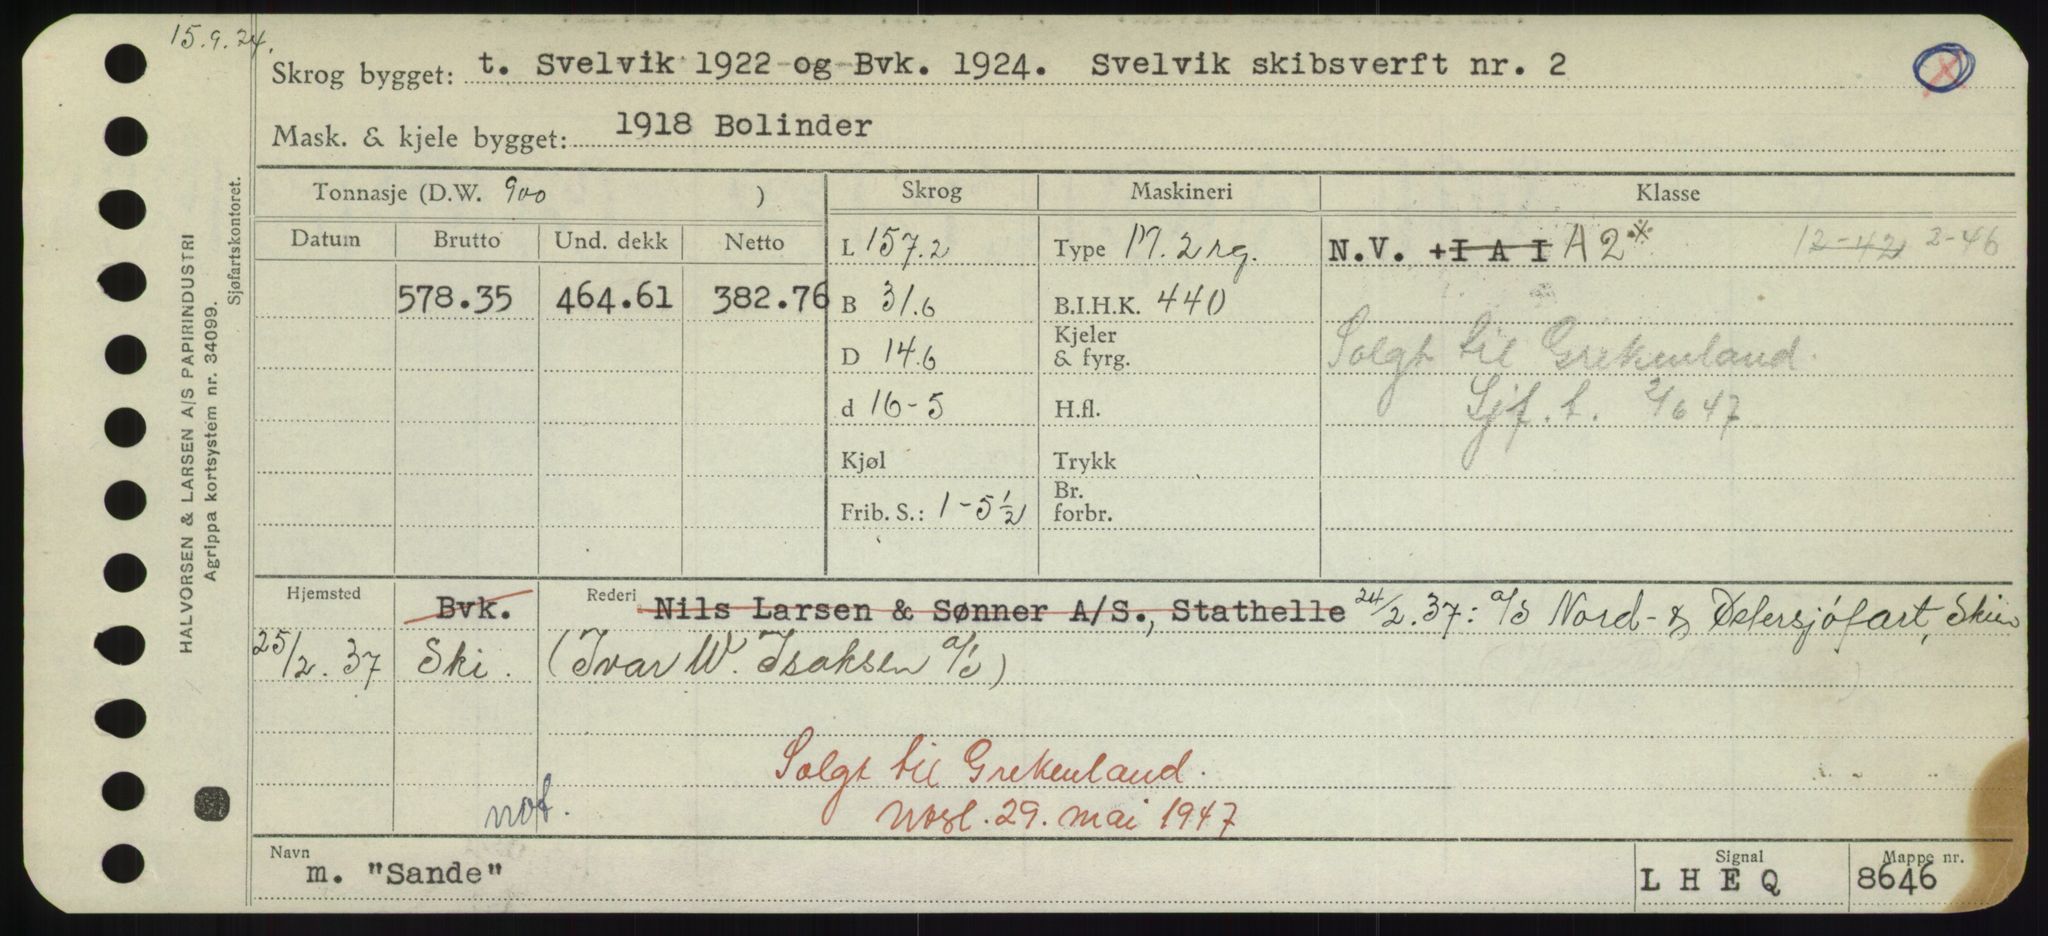 15.9.24.
Skrog bygget: t. Svelvik 1922 og Bvk. 1924. Svelvik skibsverft nr. 2
Mask. & kjele bygget: 1918 Bolinder
Tonnasje (D.W. 900 ) Skrog Maskineri Klasse
Datum Brutto Und. dekk Netto L 157.2 Type M. 2 rg. N.V. +I A I A2※ 12-42 2-46
578.35 464.61 382.76 B 31.6 B.I.H.K. 440
D 14.6 Kjeler & fyrg. Solgt til Grekenland.
d 16-5 H.fl. Sjf. t. 2/6 47
Kjøl Trykk
Frib. S.: 1-5½ Br. forbr.
Hjemsted Bvk. Rederi Nils Larsen & Sønner A/S., Stathelle 24/2.37: A/S Nord- & Østersjøfart, Skien
25/2.37 Ski. (Ivar W. Isaksen A/S)
Solgt til Grekenland.
not. Nosl. 29. mai 1947
Navn m. "Sande" Signal L H E Q Mappe nr. 8646
HALVORSEN & LARSEN A/S PAPIRINDUSTRI
Agrippa kortsystem nr. 34099.
Sjøfartskontoret.